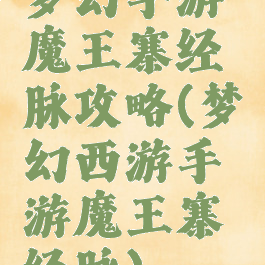 梦幻手游
魔王寨经
脉攻略(梦
幻西游手
游魔王寨
经脉)